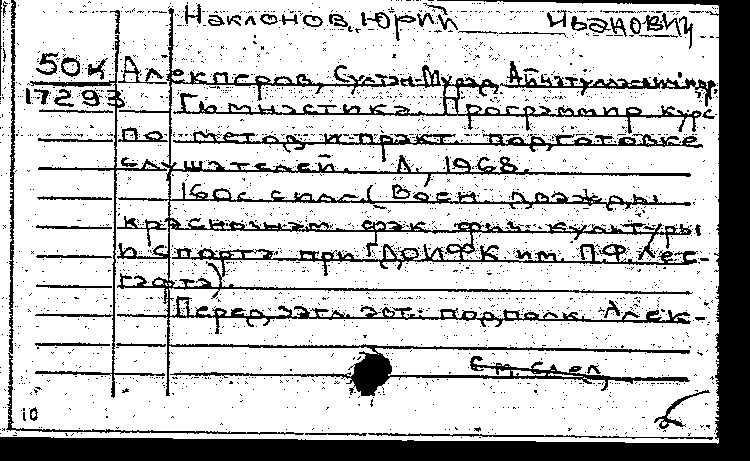 Наклонов, Юрий Иванович
50к Алекперов, Султан-Мурад Айнатуллаевич и др.
17293 Гимнастика. Программир курс
по метод. и практ. подготовке
слушателей. Л., 1968.
160с с илл. (Воен. дважды
краснознам. фак. физ. культуры
и спорта при ГДОИФК им. П.Ф. Лес-
гафта).
Перед загл. авт.: подполк. Алек-
См. след.
10